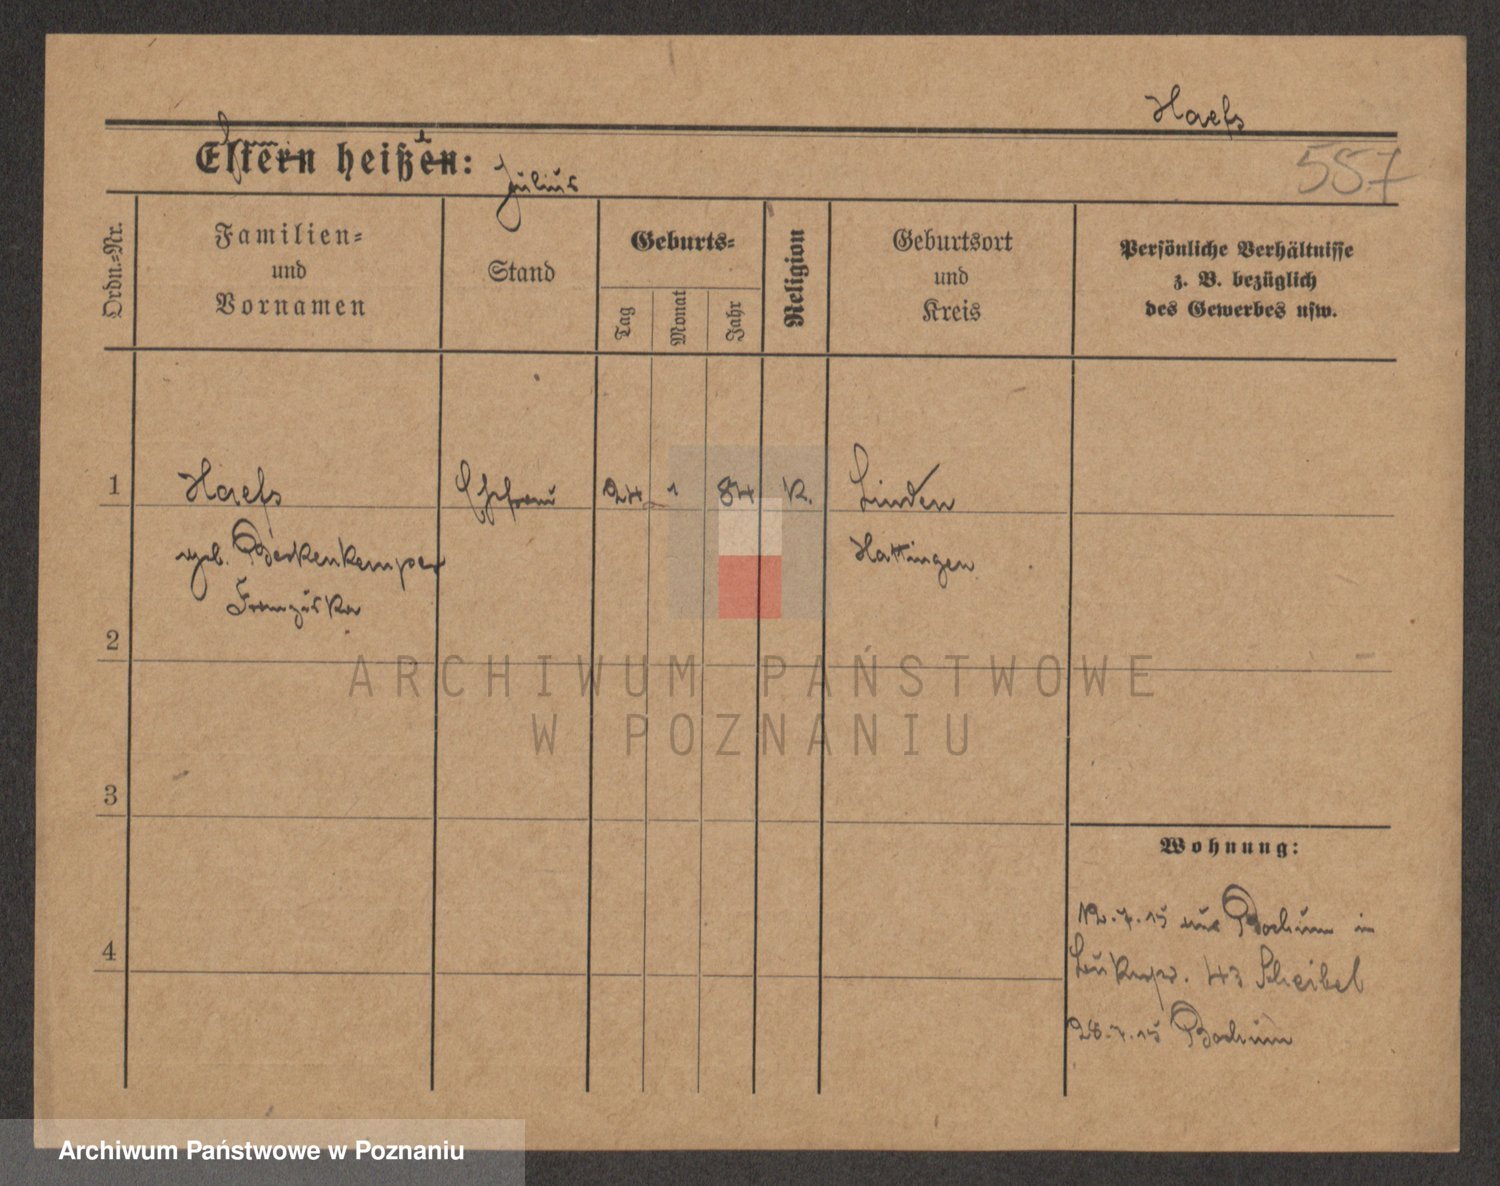 Haefs
Eltern heißen:
Julius
557
Ordn.-Nr.
Familien-
und
Vornamen
Stand
Geburts-
Tag
Monat
Jahr
Religion
Geburtsort
und
Kreis
Persönliche Verhältnisse
z. B. bezüglich
des Gewerbes usw.
1
Haefs
Ehefrau
24
1
84
K.
Linden
geb. Berkenkemper
Hattingen
Franziska
2
ARCHIWUM PAŃSTWOWE
W POZNANIU
3
Wohnung:
12.7.15 aus Bochum in
43 Scheibel
4
28.7.15 Bochum
Archiwum Państwowe w Poznaniu